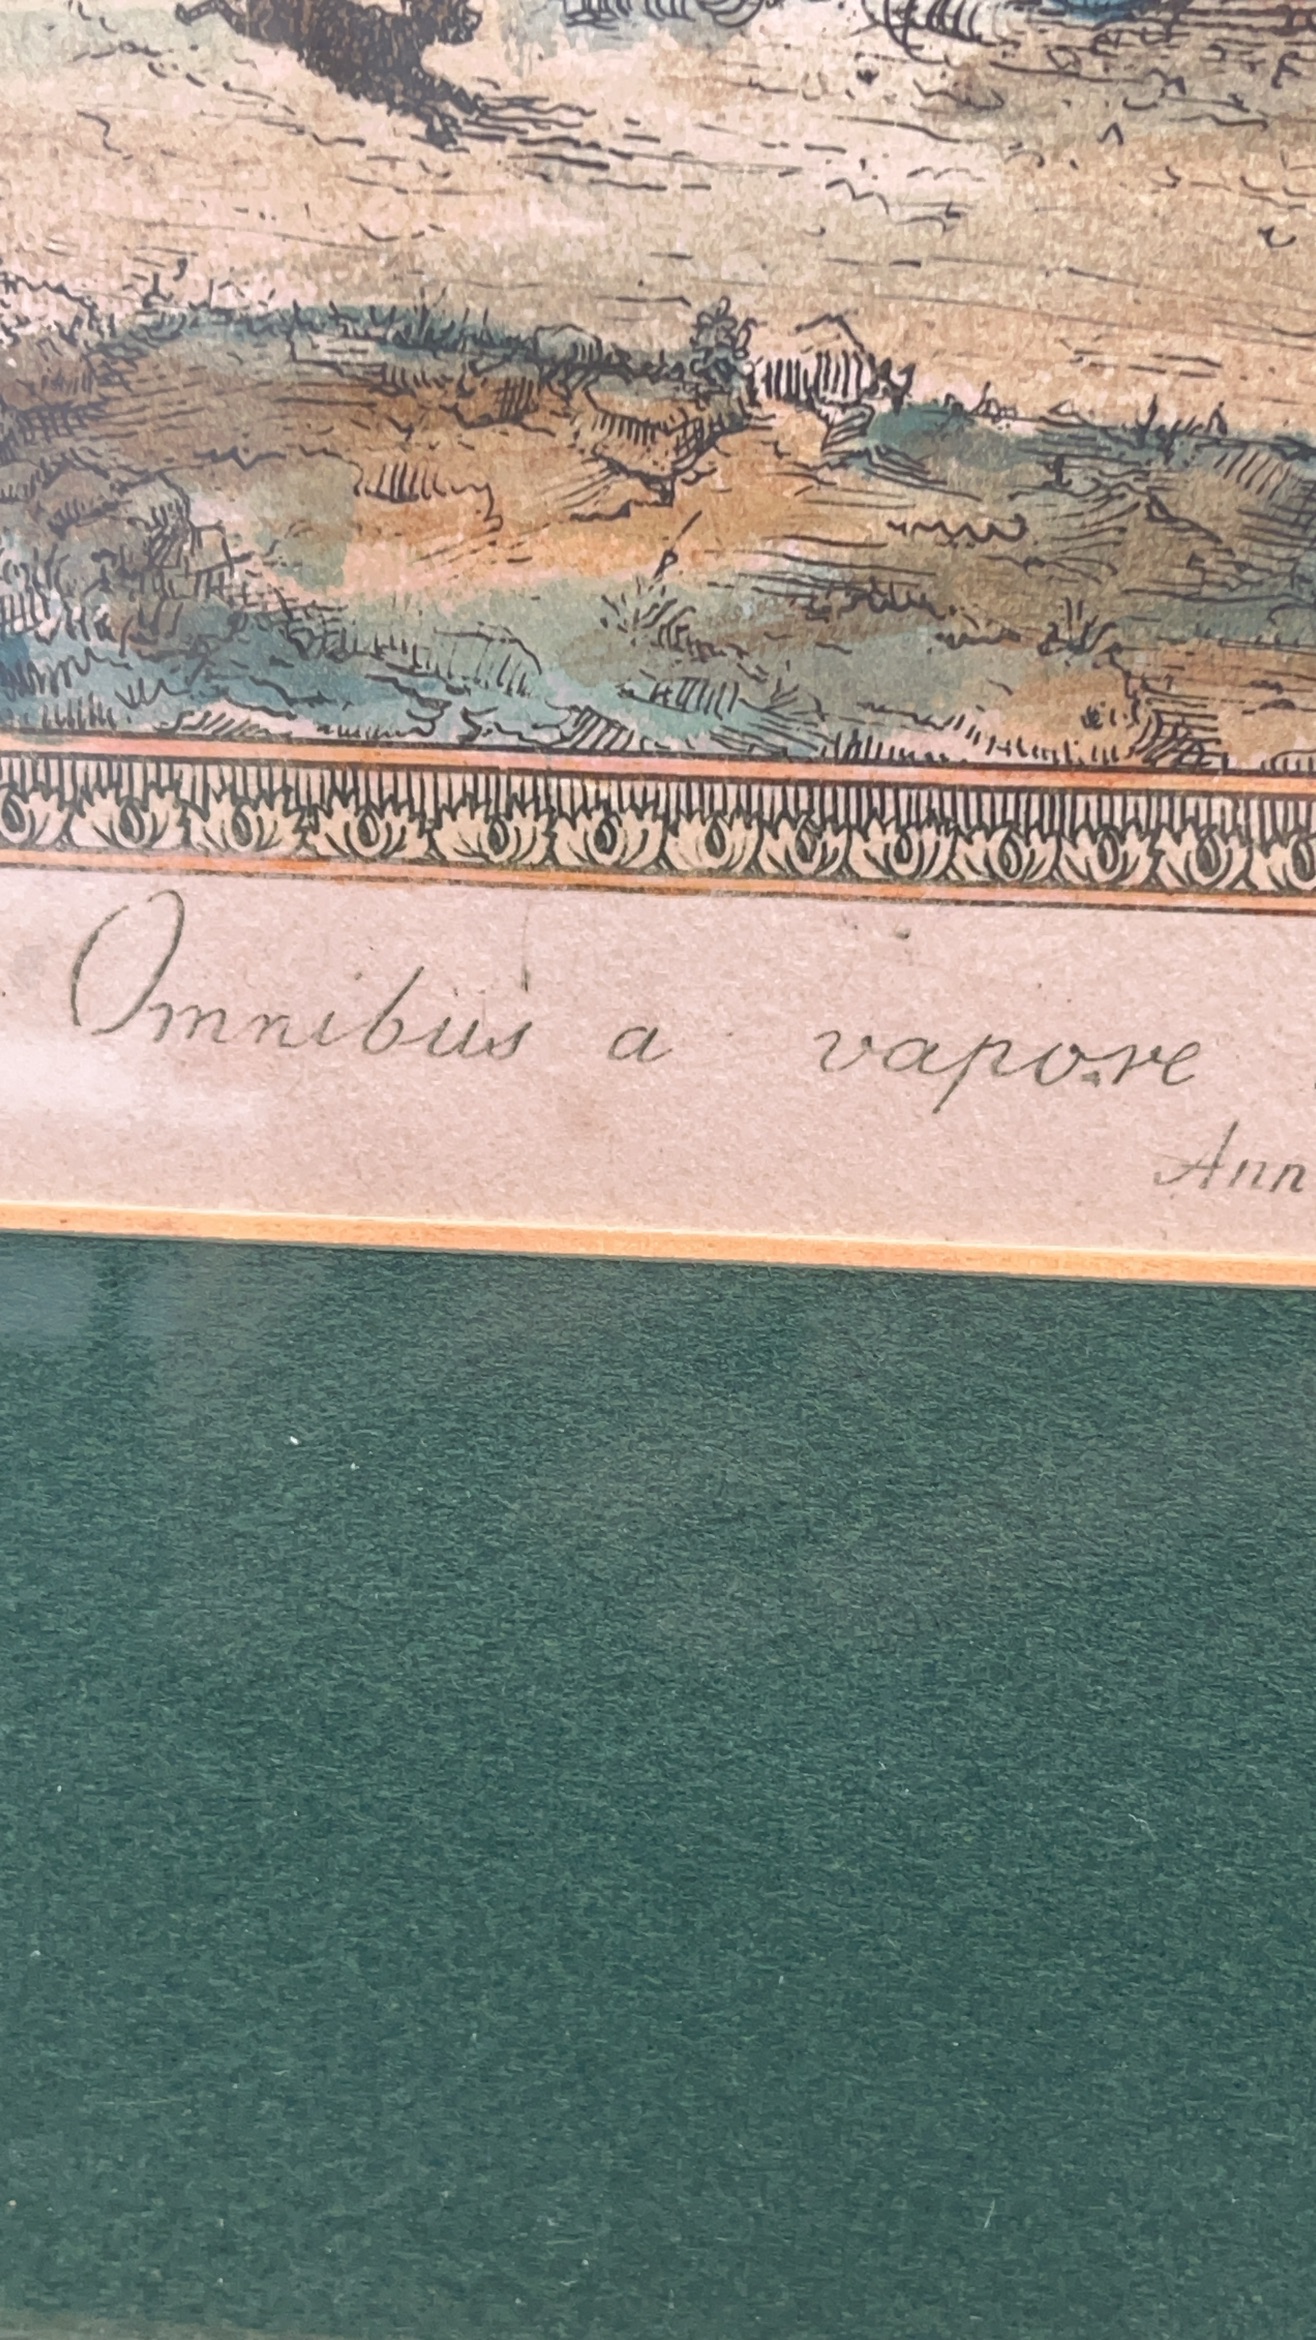 Omnibus a vapore
Ann